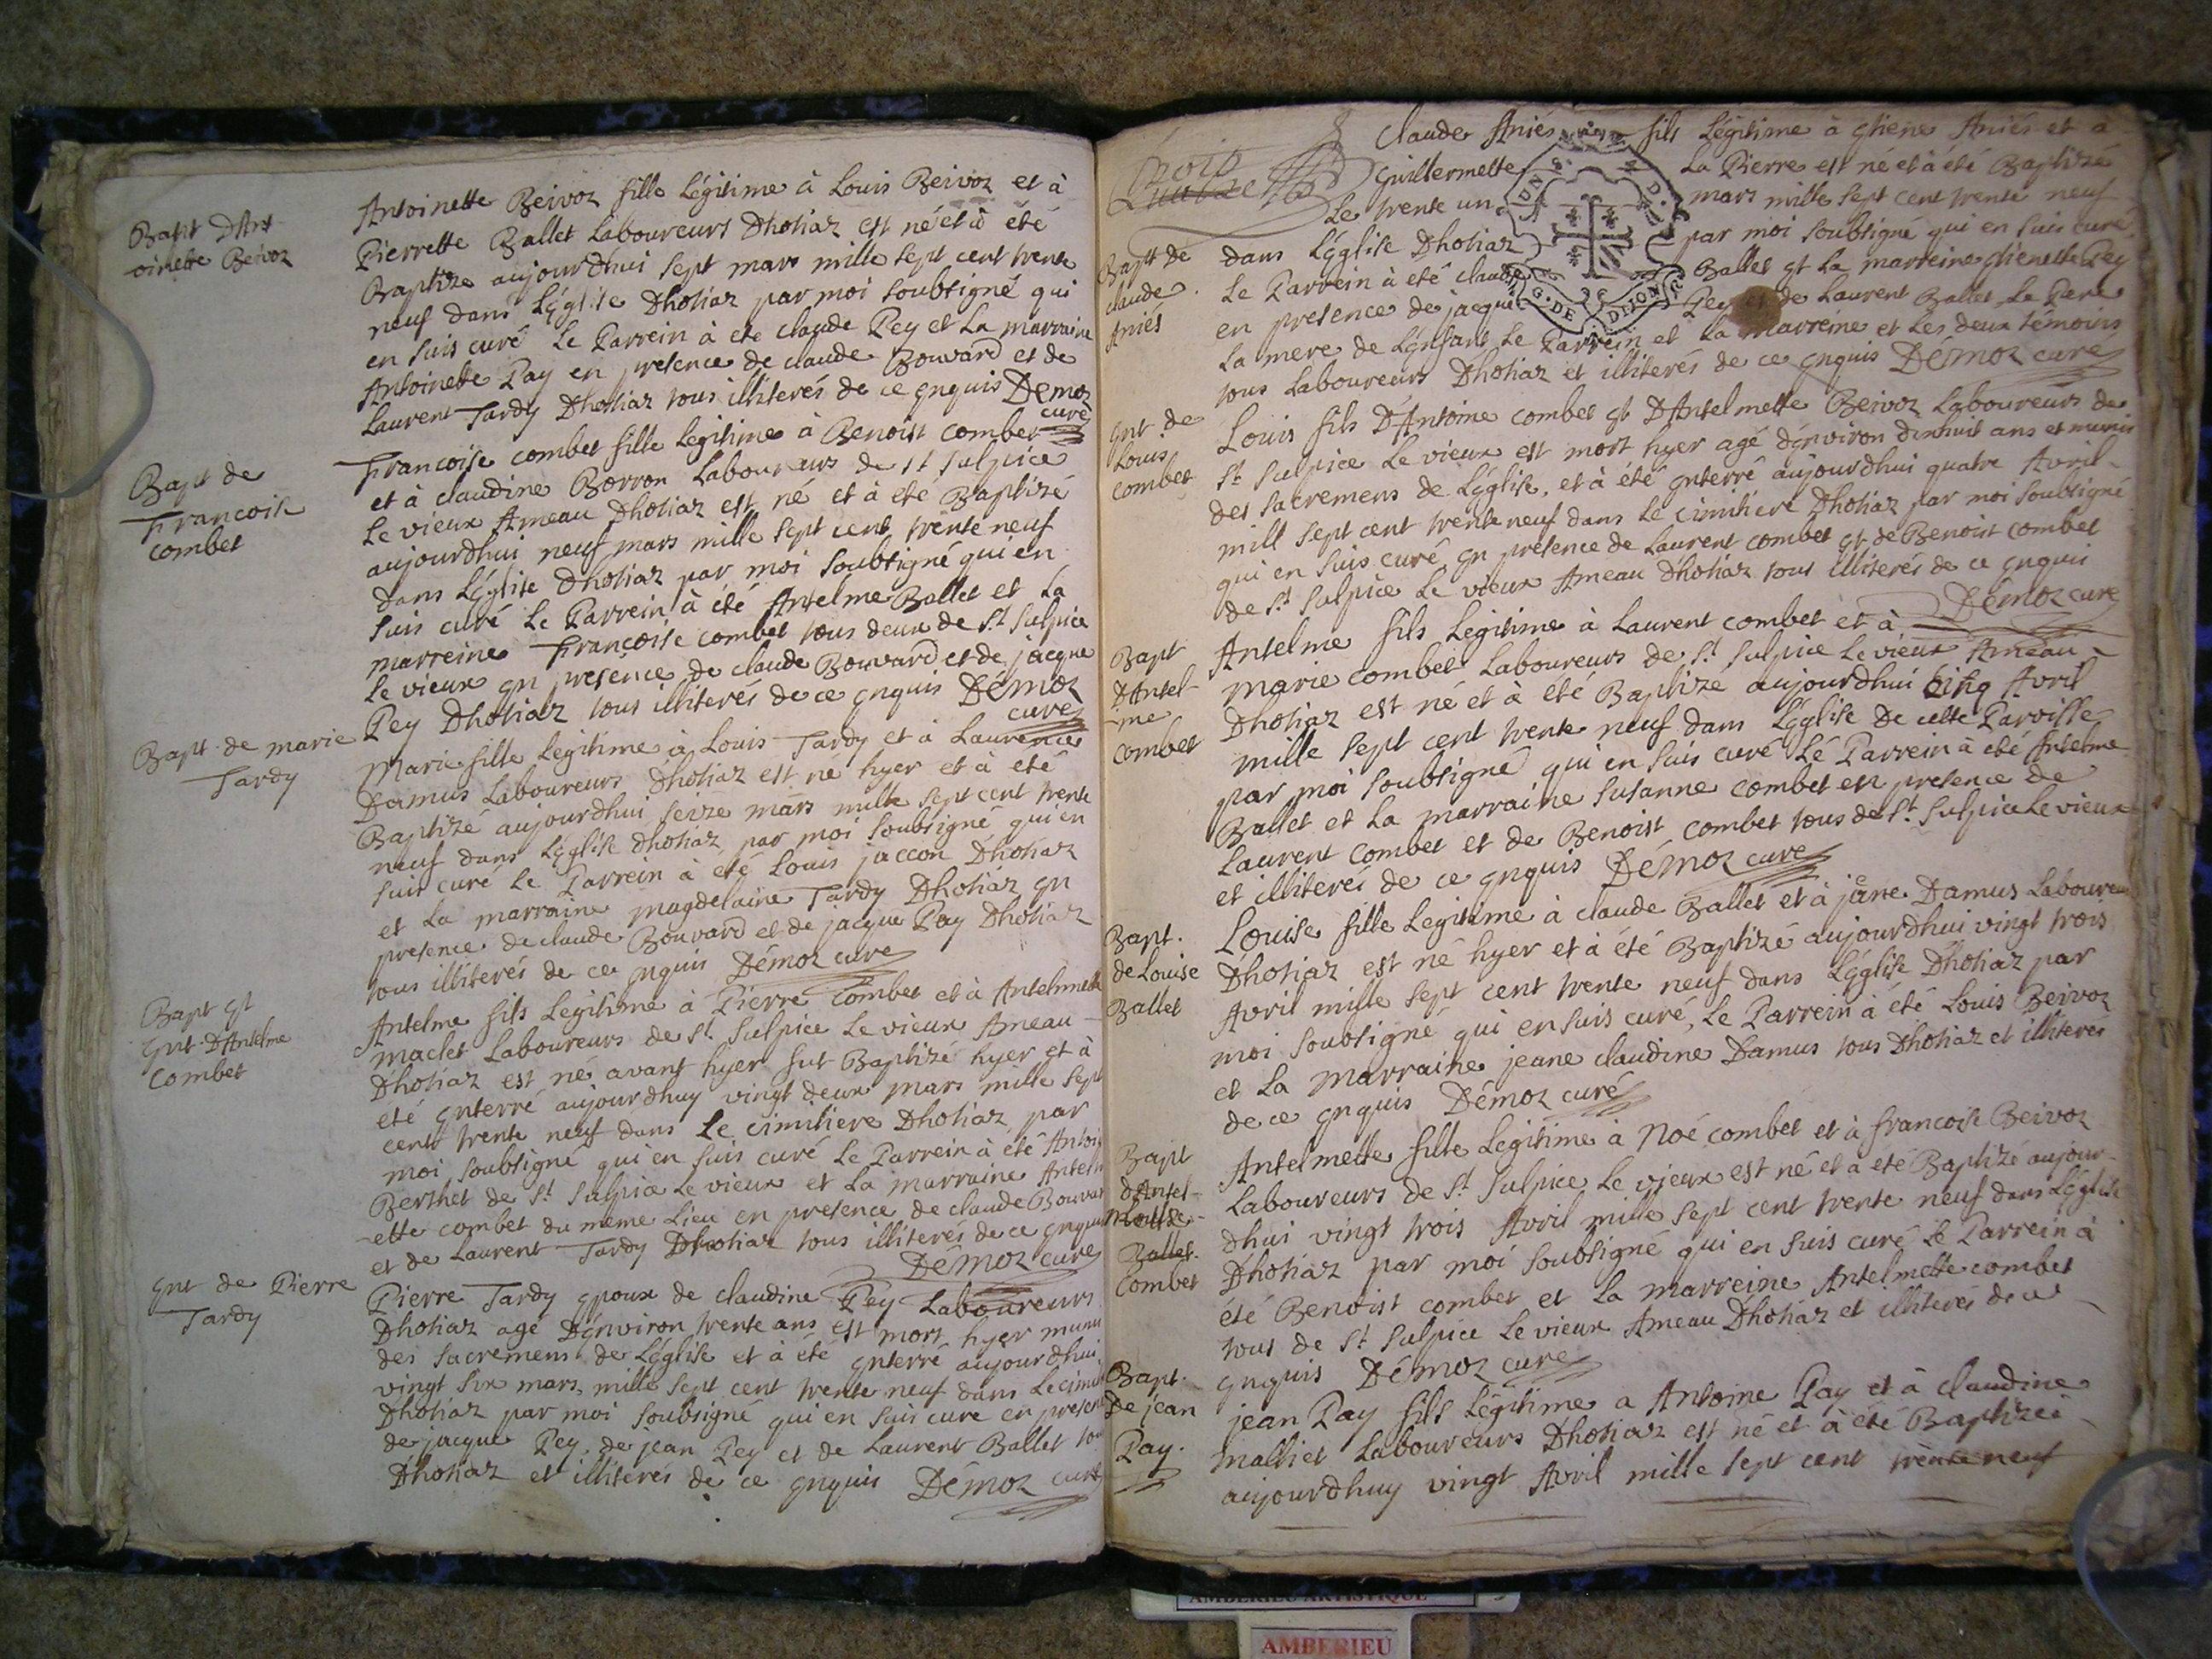 Bapt D'Ant
oinette Beivoz
Antoinette Beivoz fille Légitime à Louis Beivoz et à
Pierrette Ballet Laboureurs Dhotiaz est né et à été
Baptize aujourdhui sept mars mille sept cent trente
neuf dans Léglise Dhotiaz par moi soubsigné qui
en suis curé Le Parrein à eté claude Pey et La marraine
Antoinette Pay en presence de claude Bouvard et de
Laurent Tardy Dhotiaz tous illiterés de ce enquis Demoz
curé
Bapt de
Francoise
combet
Francoise combet fille Legitime à Benoist combet
et à claudine Borron Laboureurs de st sulpice
Le vieux Ameau Dhotiaz est né et à eté Baptizé
aujourdhui neuf mars mille sept cent trente neuf
dans Léglise Dhotiaz par moi soubsigné qui en
suis curé Le Parrein à été Antelme Ballet et La
marreine Francoise combet tous deux de st sulpice
Le vieux en presence de claude Bouvard et de jacque
Pey Dhotiaz tous illiterés de ce enquis Démoz
curé
Bapt de marie
Tardy
Marie fille Legitime à Louis Tardy et à Laurence
Damus Laboureurs Dhotiaz est né hyer et à eté
Baptizé aujourdhui seize mars mille sept cent trente
neuf dans Léglise dhotiaz par moi soubsigné qui en
suis curé Le Parrein à eté Louis jaccon Dhotiaz
et La marraine magdelaine Tardy Dhotiaz en
presence de claude Bouvard et de jacque Pay Dhotiaz
tous illiterés de ce enquis Démoz curé
Bapt et
ent D'Antelme
Combet
Antelme fils Legitime à Pierre Combet et à Antelmette
maclet Laboureurs de st sulpice Le vieux Ameau
Dhotiaz est né avant hyer fut Baptizé hyer et à
eté enterré aujourdhuy vingt deux mars mille sept
cent trente neuf dans Le cimitiere Dhotiaz par
moi soubsigné qui en suis curé Le Parrein à été Antoi
Berthet de st sulpice Le vieux et La marraine Antelm
-ette combet du meme Lieu en presence de claude Bouvar
et de Laurent Tardy Dhotiaz tous illiterés de ce enquis
Démoz curé
ent de Pierre
Tardy
Pierre Tardy epoux de claudine Pey Laboureurs
Dhotiaz agé D'environ trente ans est mort hyer muni
des sacremens de Léglise et à été enterré aujourdhui
vingt six mars mille sept cent trente neuf dans Le cimi
Dhotiaz par moi soubsigné qui en suis cure en presen
de jacque Pey, de jean Pey et de Laurent Ballet to
Dhotiaz et illiterés de ce enquis Démoz curé
Bapt de
claude
Aniés
claude Aniés fils Légitime à etiene Aniés et à
Guillermette La Pierre est né et à été Baptizé
Le trente un mars mille sept cent trente neuf
dans Léglise Dhotiaz par moi soubsigné qui en suis curé
Le Parrein à eté claude Ballet et La marreine etienette Pey
en presence de jacque Pey et de Laurent Ballet Le Pere
La mere de L'enfant Le Parrein et La marreine et Les deux témoins
tous Laboureurs Dhotiaz et illiterés de ce enquis Démoz curé
G. DE DIJON
ent de
Louis
combet
Louis fils D'Antoine combet et D'Antelmette Beivoz Laboureurs de
st sulpice Le vieux est mort hyer agé d'environ dixhuit ans et munis
des sacremens de Léglise, et à été enterré aujourdhui quatre Avril
mill sept cent trente neuf dans Le cimitiere Dhotiaz par moi soubsigné
qui en suis curé en presence de Laurent combet et de Benoist combet
de st sulpice Le vieux Ameau Dhotiaz tous illiterés de ce enquis
Démoz curé
Bapt
D'Antel-
-me
combet
Antelme fils Legitime à Laurent combet et à
marie combet Laboureurs de st sulpice Le vieux Ameau
Dhotiaz est né et à été Baptizé aujourdhui cinq Avril
mille sept cent trente neuf dans Léglise De cette Parroisse
par moi soubsigné qui en suis curé Le Parrein à eté Antelme
Ballet et La marraine susanne combet en presence de
Laurent combet et de Benoist combet tous de st sulpice Le vieux
et illiterés de ce enquis Démoz curé
Bapt.
de Louise
Ballet
Louise fille Legitime à claude Ballet et à jeane Damus Laboureu
Dhotiaz est né hyer et à été Baptizé aujourdhui vingt trois
Avril mille sept cent trente neuf dans Léglise Dhotiaz par
moi soubsigné qui en suis curé, Le Parrein à été Louis Beivoz
et La marraine jeane claudine Damus tous Dhotiaz et illiterés
de ce enquis Démoz curé
Bapt
d'Antel-
mette
Ballet.
Combet
Antelmette fille Legitime à Noé combet et à francoise Beivoz
Laboureurs de st sulpice Le vieux est né et à eté Baptizé aujour-
dhui vingt trois Avril mille sept cent trente neuf dans Léglise
Dhotiaz par moi soubsigné qui en suis curé Le Parrein à
été Benoist combet et La marreine Antelmette combet
tous de st sulpice Le vieux Ameau Dhotiaz et illiterés de ce
enquis Démoz curé
Bapt.
De jean
Pay.
jean Pay fils Légitime a Antoine Pay et à claudine
malliet Laboureurs Dhotiaz est né et à été Baptizé
aujourdhuy vingt Avril mille sept cent trente neuf
AMBERIEU ARTISTIQUE
AMBERIEU